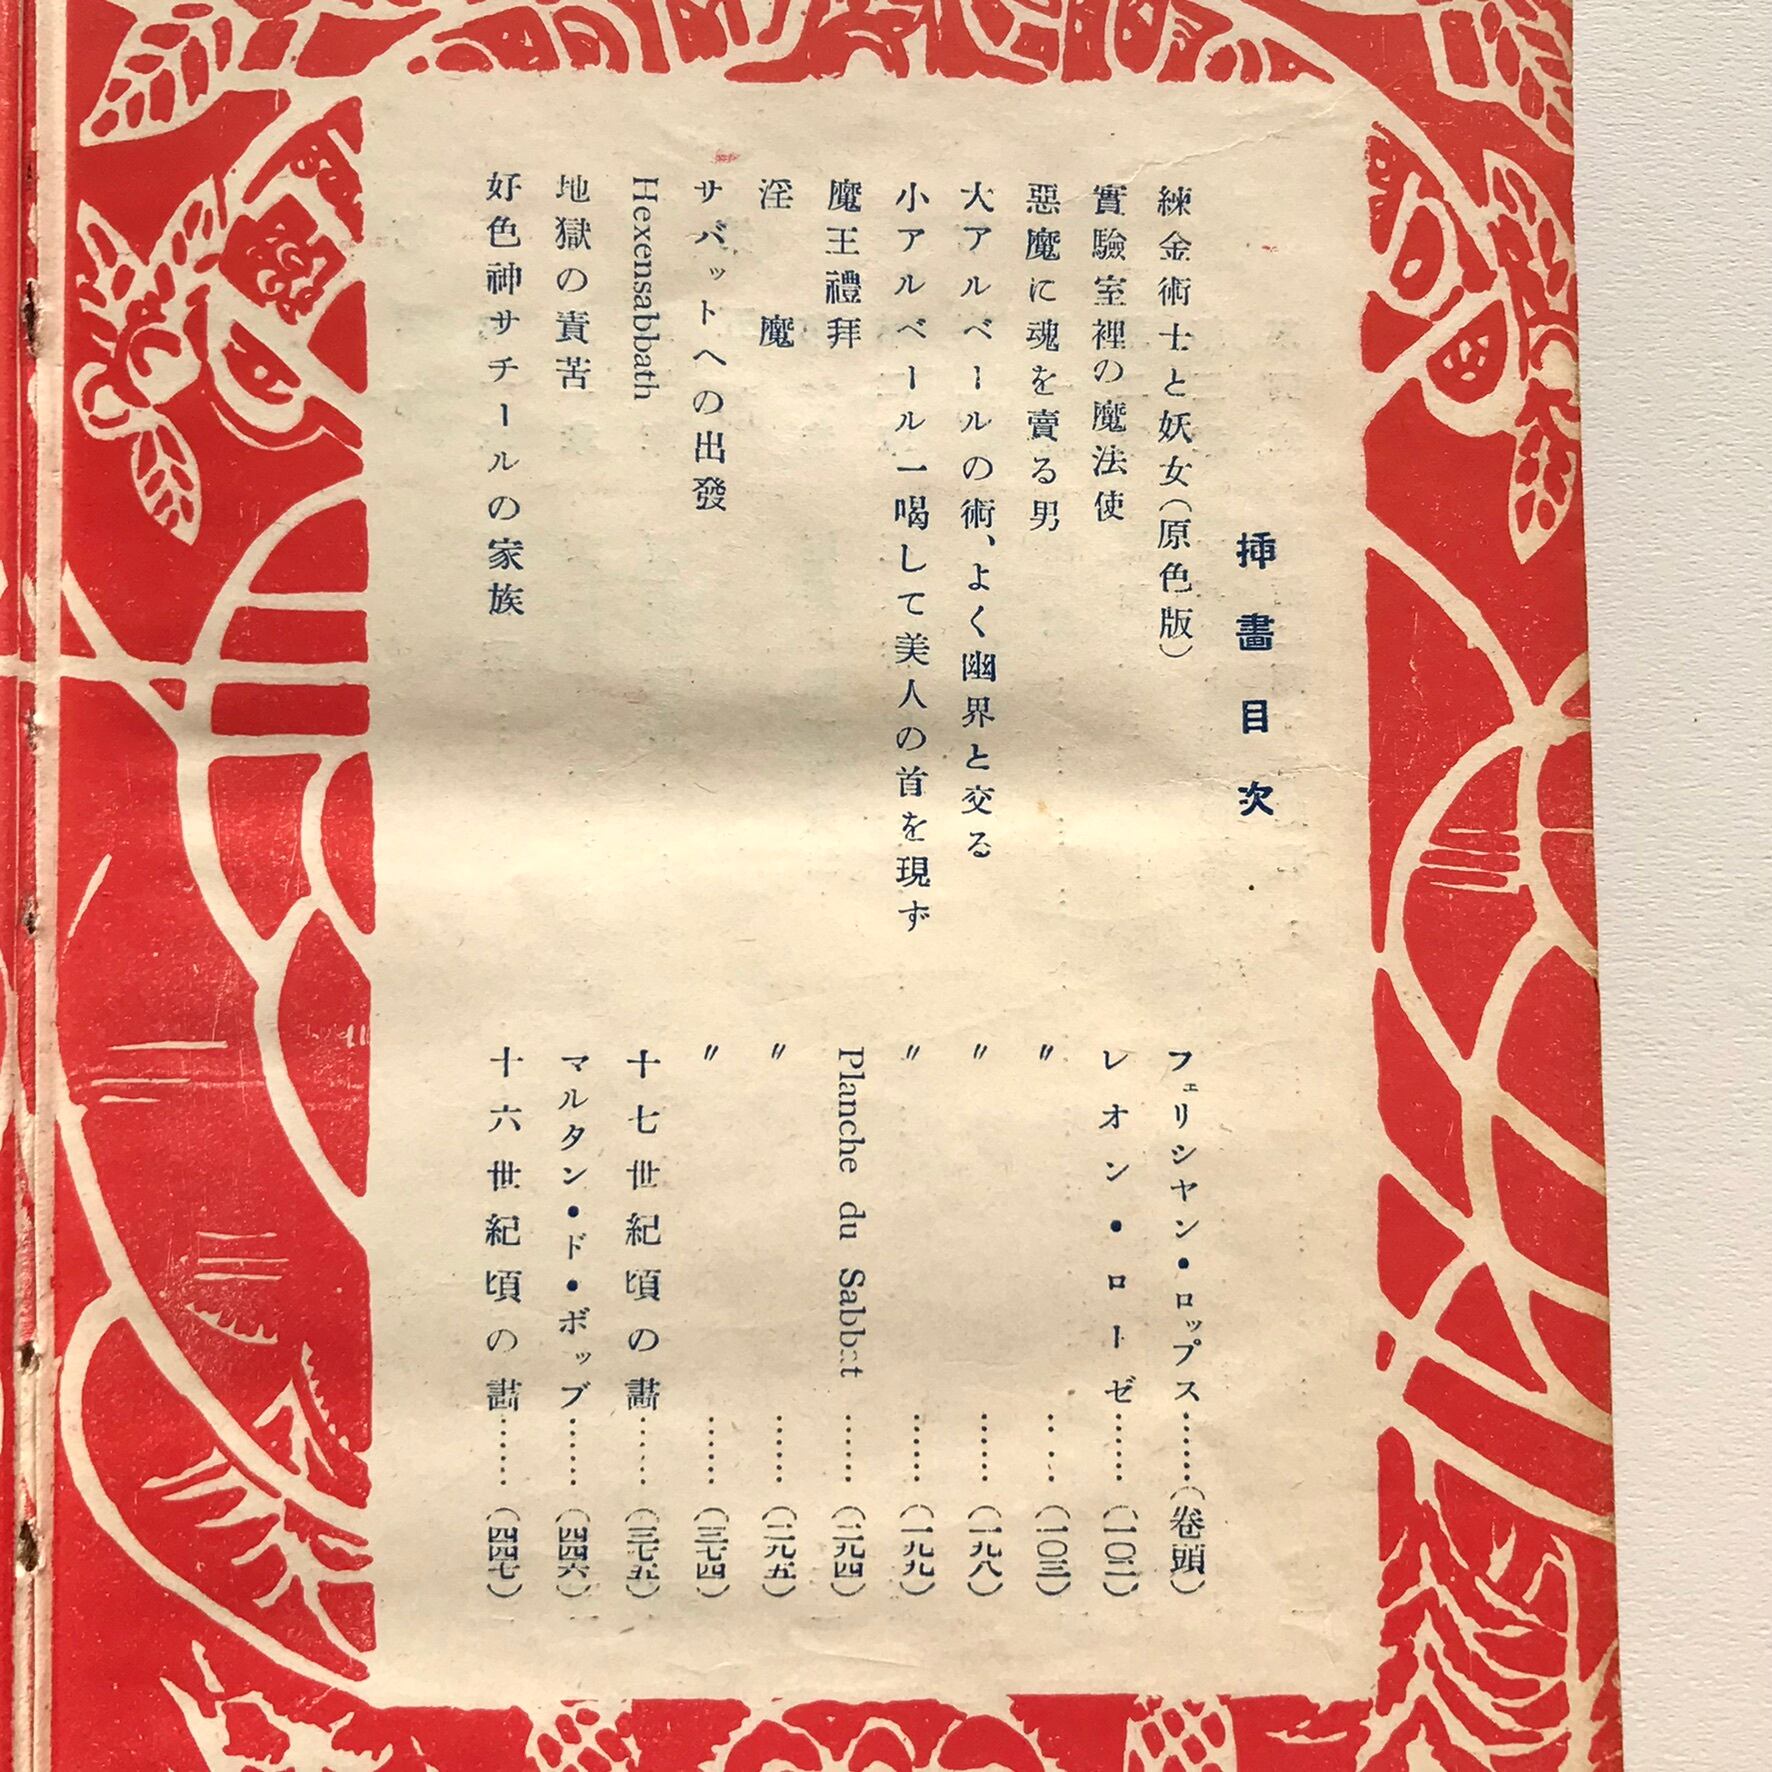 挿畫目次
練金術士と妖女(原色版) フェリシヤン・ロップス……(卷頭)
實驗室裡の魔法使 レオン・ローゼ……(一〇二)
惡魔に魂を賣る男 〃……(一〇三)
大アルベールの術、よく幽界と交る 〃……(一九八)
小アルベール一喝して美人の首を現ず 〃……(一九九)
魔王禮拜 Planche du Sabbat……(二九四)
淫魔 〃……(二九五)
サバットへの出發 〃……(三七四)
Hexensabbath 十七世紀頃の畵……(三七五)
地獄の責苦 マルタン・ド・ボッブ……(四四六)
好色神サチールの家族 十六世紀頃の畵……(四四七)